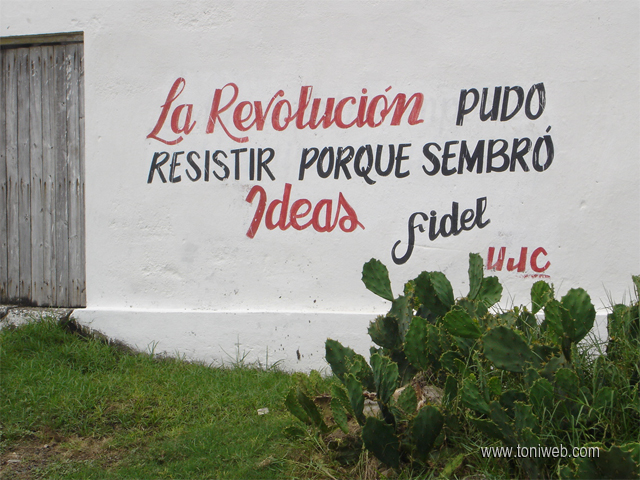 La Revolución PUDO
RESISTIR PORQUE SEMBRÓ
Ideas
Fidel
UJC
www.toniweb.com